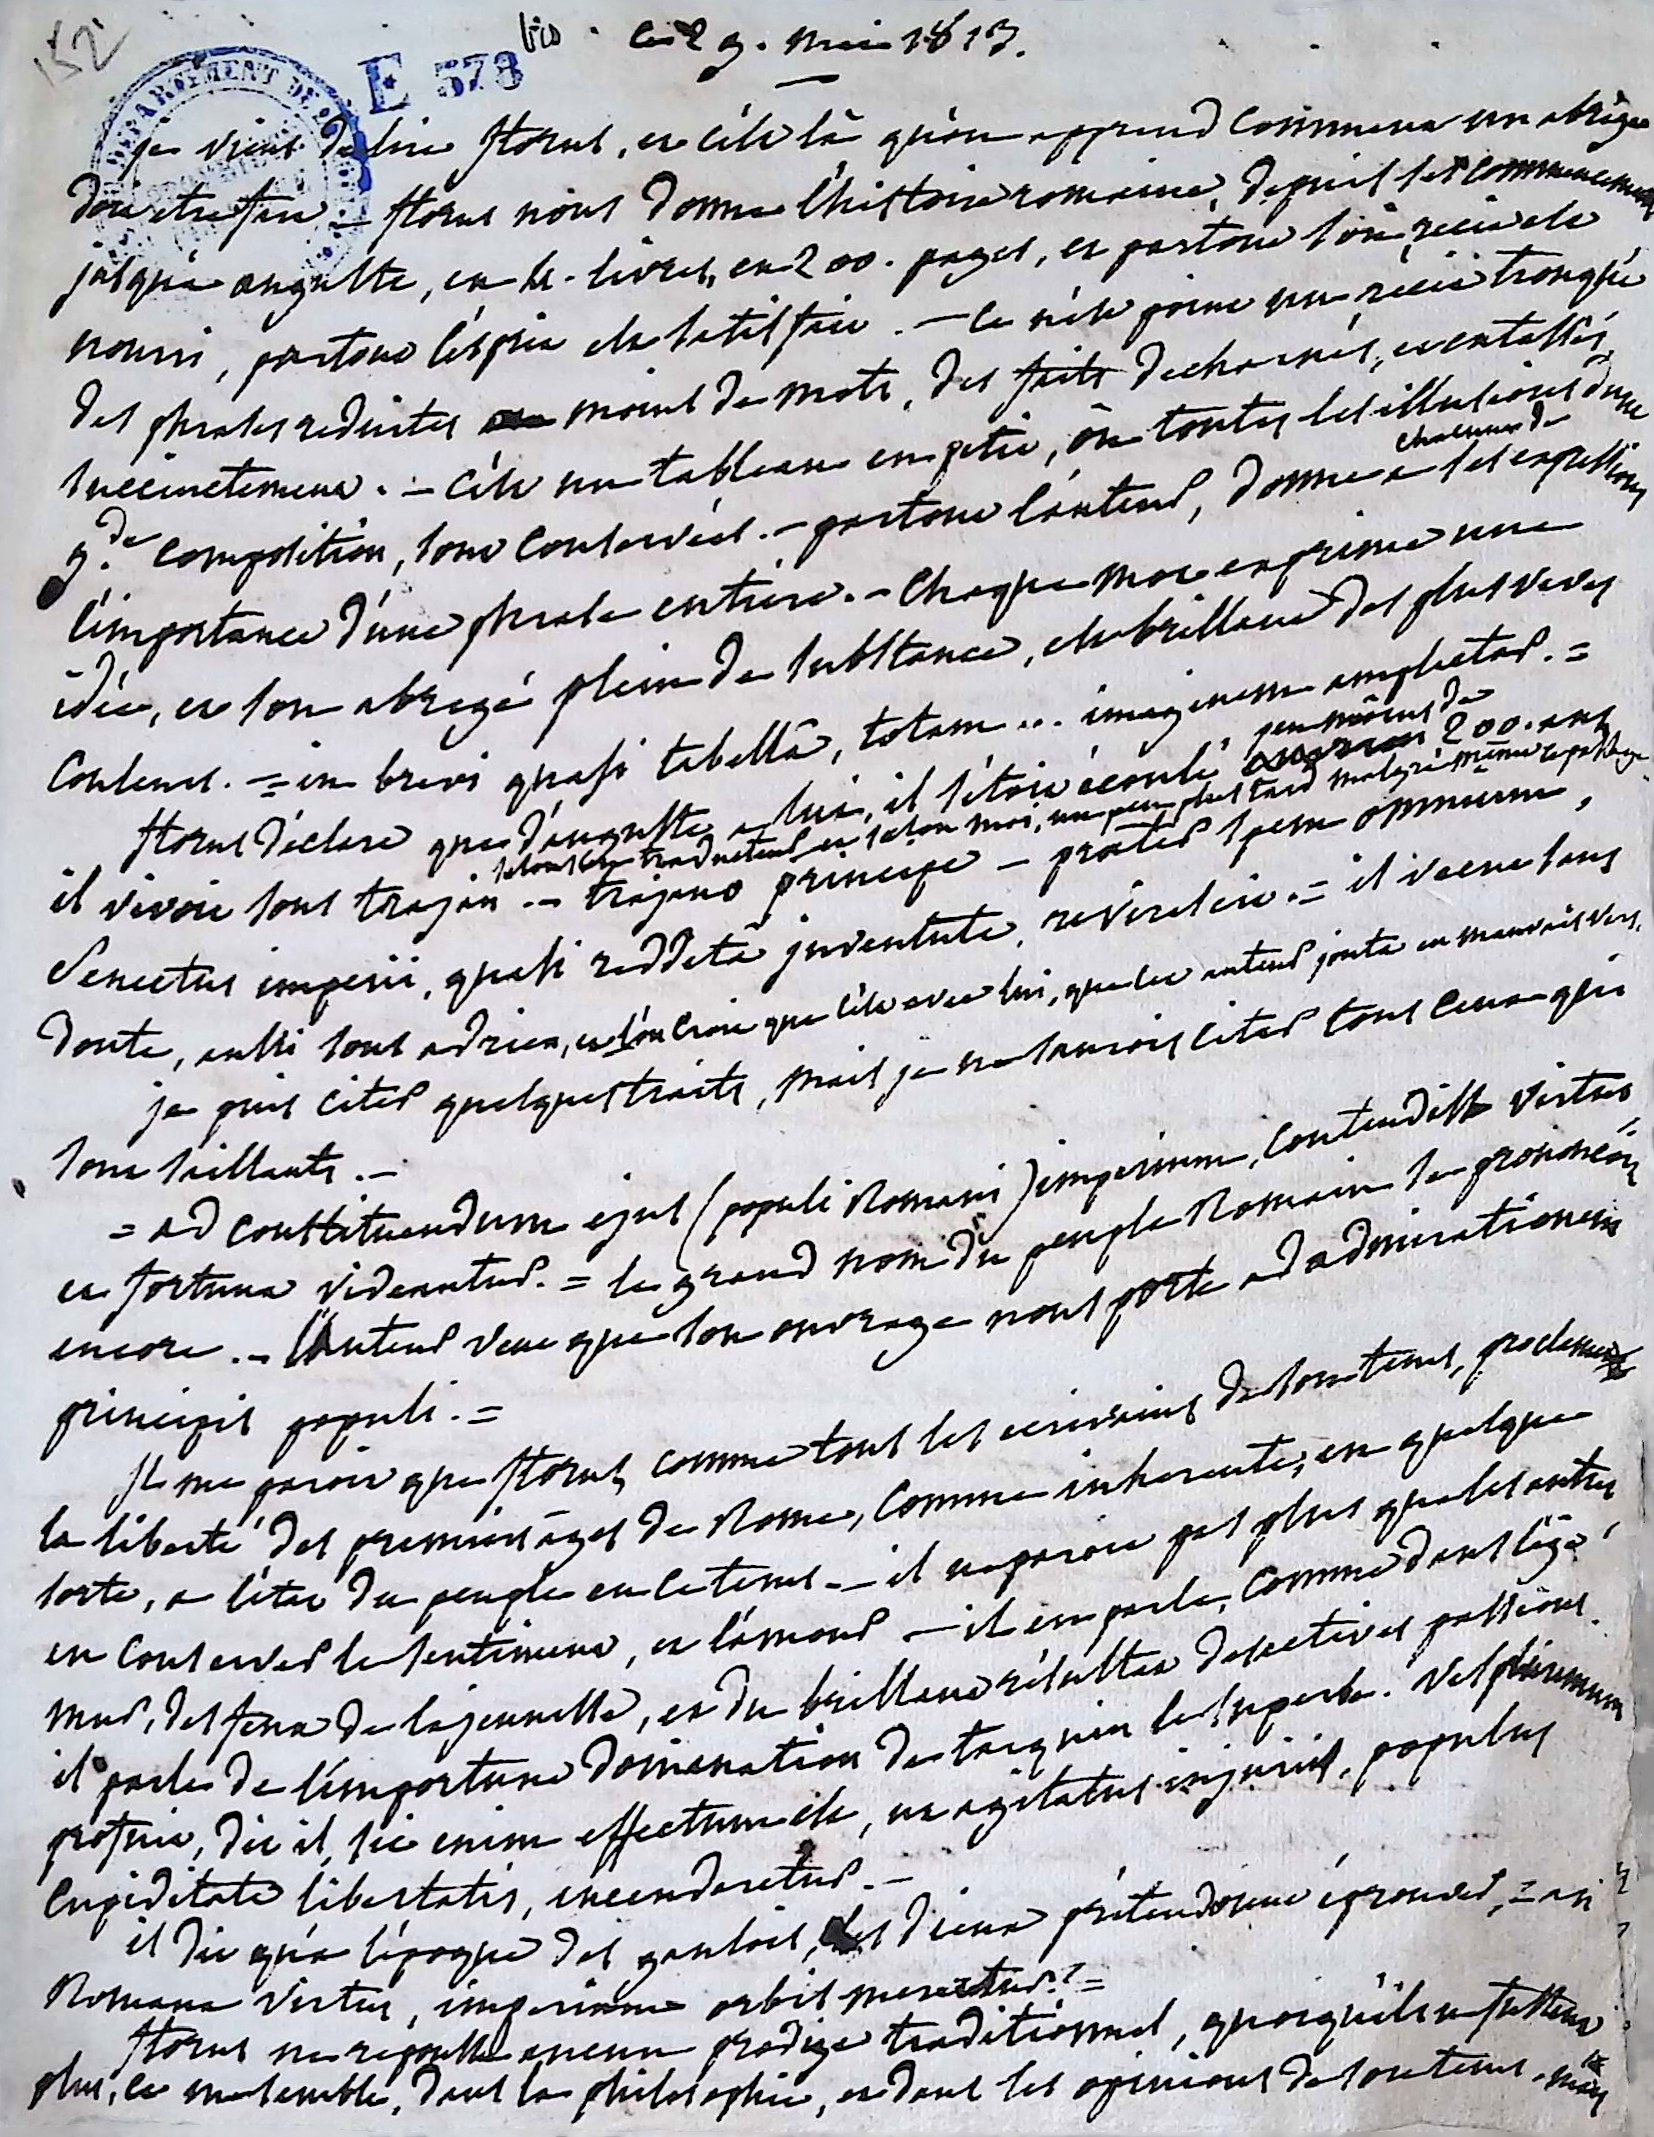 152
E 578 bis
ce 29. mai 1813.
je viens de lire florus, et c'est là qu'on apprend comment un abrégé
doit etre fait — florus nous donne l'histoire romaine, depuis ses commencements
jusqu'à auguste, en 4. livres, en 200. pages, et partout son recit est
nourri, partout l'esprit est satisfait. — ce n'est point un recit tronqué
des phrases reduites moins de mots, des faits decharnés, et entassés
succinctement. — c'est un tableau en petit, où toutes les illusions d'une
g.de composition, sont conservées. — partout l'auteur, donne a chacune de ses expressions
l'importance d'une phrase entiere. — chaque mot exprime une
idée, et son abregé plein de substance, est brillant des plus vives
couleurs. — = in brevi quasi tabellâ, totam ... imaginem amplectar. =
florus déclare que d'auguste a lui, il s'étoit écoulé peu moins de 200. ans
selon son traducteur et selon moi, un peu plus tard malgré même ce passage
il vivoit sous trajan. — trajano principe — praeter spem omnium,
senectus imperii, quasi redditâ juventute, revirescit. = il vecut sans
doute, aussi sous adrien, et l'on croit que c'est avec lui, que cet auteur jouta en mauvais vers.
je puis citer quelques traits, mais je ne saurois citer tous ceux qui
sont saillants. —
= ad constituendum ejus (populi Romani) imperium, contendisse virtus
et fortuna videantur. = le grand nom du peuple Romain se prononçoit
encore. — l'auteur veut que son ouvrage nous porte ad admirationem
principis populi. =
Il me paroit que florus, comme tous les ecrivains de son tems, proclame
la liberté des premiers âges de Rome, comme inherente, en quelque
sorte, a l'état du peuple en ce tems. — il ne paroit pas plus que les autres
en conserver le sentiment, et l'amour — il en parle, comme dans l'âge
mur, des feux de la jeunesse, et du brillant résultat des actives passions.
il parle de l'importune domination de tarquin le superbe. vel plurimum
profuit, dit il, sic enim effectum est, ut agitatus injuriis, populus
cupiditate libertatis, incenderetur. —
il dit qu'a l'époque des gaulois, les dieux prétendoient éprouver, = an
Romana virtus, imperium orbis mereretur? =
florus ne repousse aucun prodige traditionnel, quoiqu'ils ne fussent
plus, ce me semble, dans la philosophie, et dans les opinions de son tems. mais